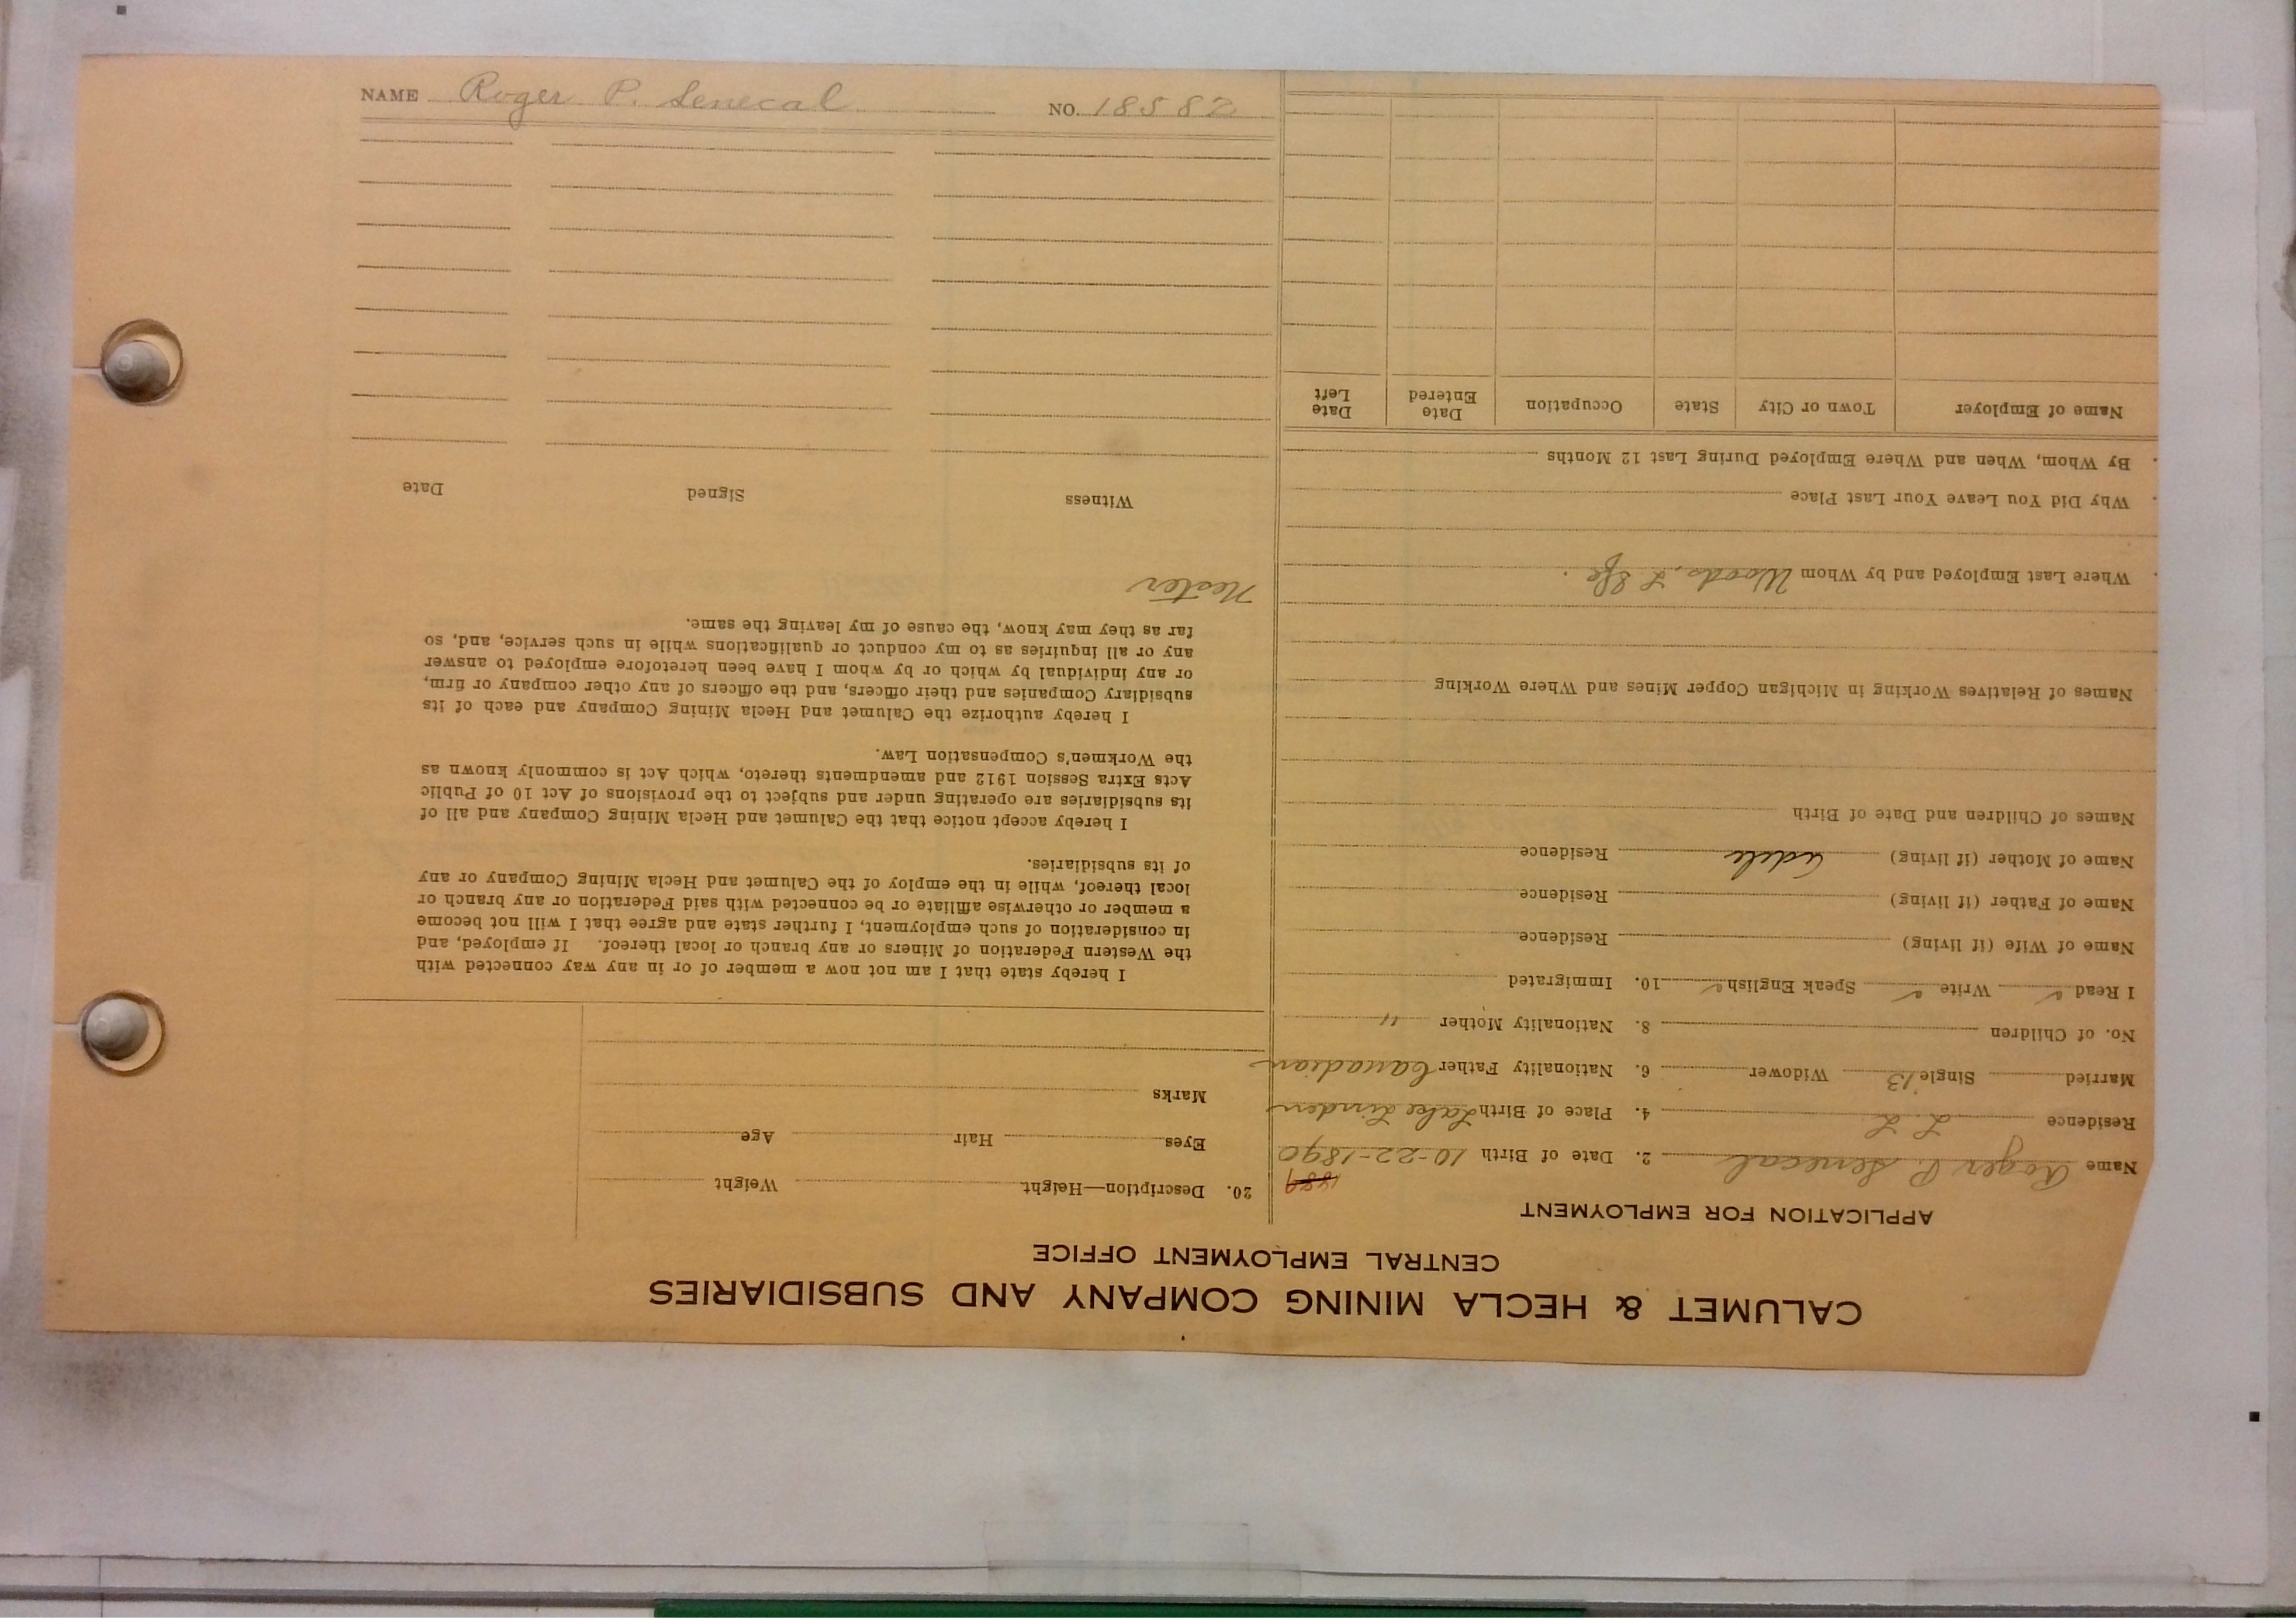 NAME Roger P. Senecal NO. 18582
CALUMET & HECLA MINING COMPANY AND SUBSIDIARIES
CENTRAL EMPLOYMENT OFFICE
APPLICATION FOR EMPLOYMENT
1889
Name Roger P. Senecal 2. Date of Birth 10-22-1890
Residence L. L. 4. Place of Birth Lake Linden
Married Single 13 Widower 6. Nationality Father Canadian
No. of Children 8. Nationality Mother "
I Read ✓ Write ✓ Speak English ✓ 10. Immigrated
Name of Wife (if living) Residence
Name of Father (if living) Residence
Name of Mother (if living) Adele Residence
Names of Children and Date of Birth
Names of Relatives Working in Michigan Copper Mines and Where Working
Where Last Employed and by Whom Woods, L
Why Did You Leave Your Last Place
By Whom, When and Where Employed During Last 12 Months
Name of Employer Town or City State Occupation Date Entered Date Left
20. Description—Height Weight
Eyes Hair Age
Marks
I hereby state that I am not now a member of or in any way connected with
the Western Federation of Miners or any branch or local thereof. If employed, and
in consideration of such employment, I further state and agree that I will not become
a member or otherwise affiliate or be connected with said Federation or any branch or
local thereof, while in the employ of the Calumet and Hecla Mining Company or any
of its subsidiaries.
I hereby accept notice that the Calumet and Hecla Mining Company and all of
its subsidiaries are operating under and subject to the provisions of Act 10 of Public
Acts Extra Session 1912 and amendments thereto, which Act is commonly known as
the Workmen's Compensation Law.
I hereby authorize the Calumet and Hecla Mining Company and each of its
subsidiary Companies and their officers, and the officers of any other company or firm,
or any individual by which or by whom I have been heretofore employed to answer
any or all inquiries as to my conduct or qualifications while in such service, and, so
far as they may know, the cause of my leaving the same.
Nester
Witness Signed Date